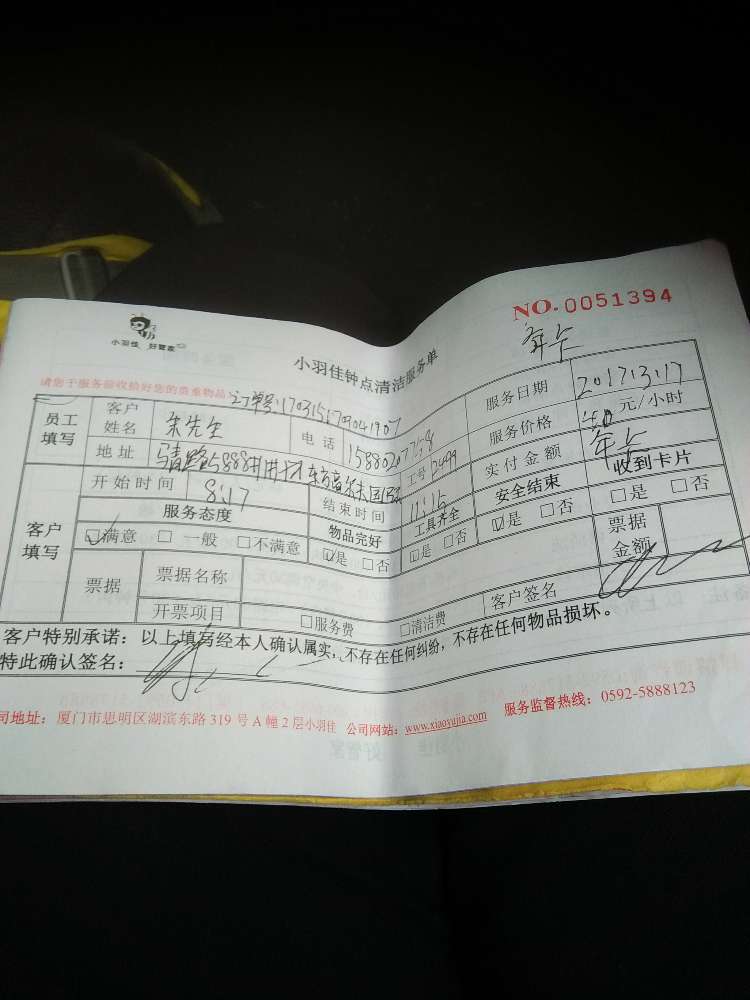 NO. 0051394
小羽佳 好管家
小羽佳钟点清洁服务单
年卡
请您于服务前收拾好您的贵重物品
订单号:1703151709041907
服务日期 2017.3.17
员工填写 客户姓名 朱先生 电话 服务价格 40 元/小时
地址 工号 实付金额 年卡
客户填写 开始时间 8:17 结束时间 11:15 安全结束 收到卡片
服务态度 物品完好 工具齐全 ☑是 □否 □是 □否
☑满意 □ 一般 □不满意 ☑是 □否 ☑是 □否
票据 票据名称 票据金额
开票项目 □服务费 □清洁费 客户签名
客户特别承诺：以上填写经本人确认属实，不存在任何纠纷，不存在任何物品损坏。
特此确认签名：
司地址：厦门市思明区湖滨东路 319 号 A 幢 2 层小羽佳 公司网站：www.xiaoyujia.com 服务监督热线：0592-5888123